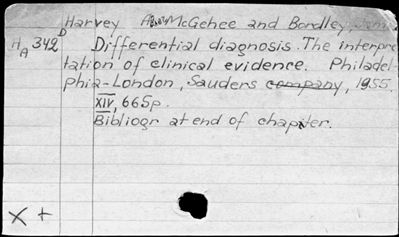 Harvey McGehee and Bordley,
HA 342 D Differential diagnosis. The interpre
tation of clinical evidence. Philadel
phia-London, Sauders company, 1955.
XIV, 665p.
Bibliogr at end of chapter.
X +